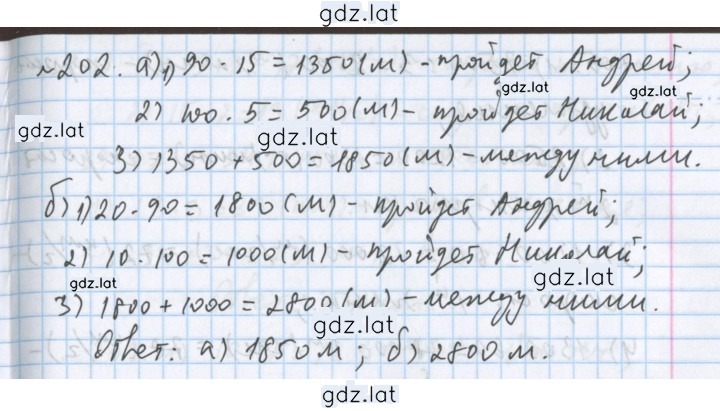 gdz.lat
№202. а) 1) 90 · 15 = 1350 (м) - пройдет Андрей;
gdz.lat gdz.lat
2) 100 · 5 = 500 (м) - пройдет Николай;
gdz.lat gdz.lat
3) 1350 + 500 = 1850 (м) - между ними.
б) 1) 20 · 90 = 1800 (м) - пройдет Андрей;
2) 10 · 100 = 1000 (м) - пройдет Николай;
gdz.lat gdz.lat
3) 1800 + 1000 = 2800 (м) - между ними.
gdz.lat
Ответ: а) 1850 м; б) 2800 м.
gdz.lat